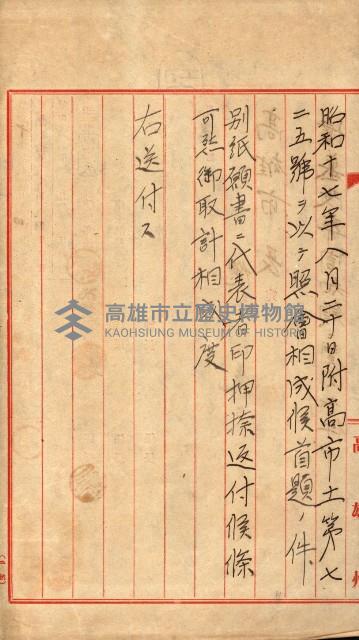 昭和十七年八月二十日附高市土第七
二五號ヲ以テ照會相成候首題ノ件
別紙願書ニ代表者印押捺返付候條
可然御取計相成度
右送付ス
高雄市立歷史博物館
KAOHSIUNG MUSEUM OF HISTORY
高雄州